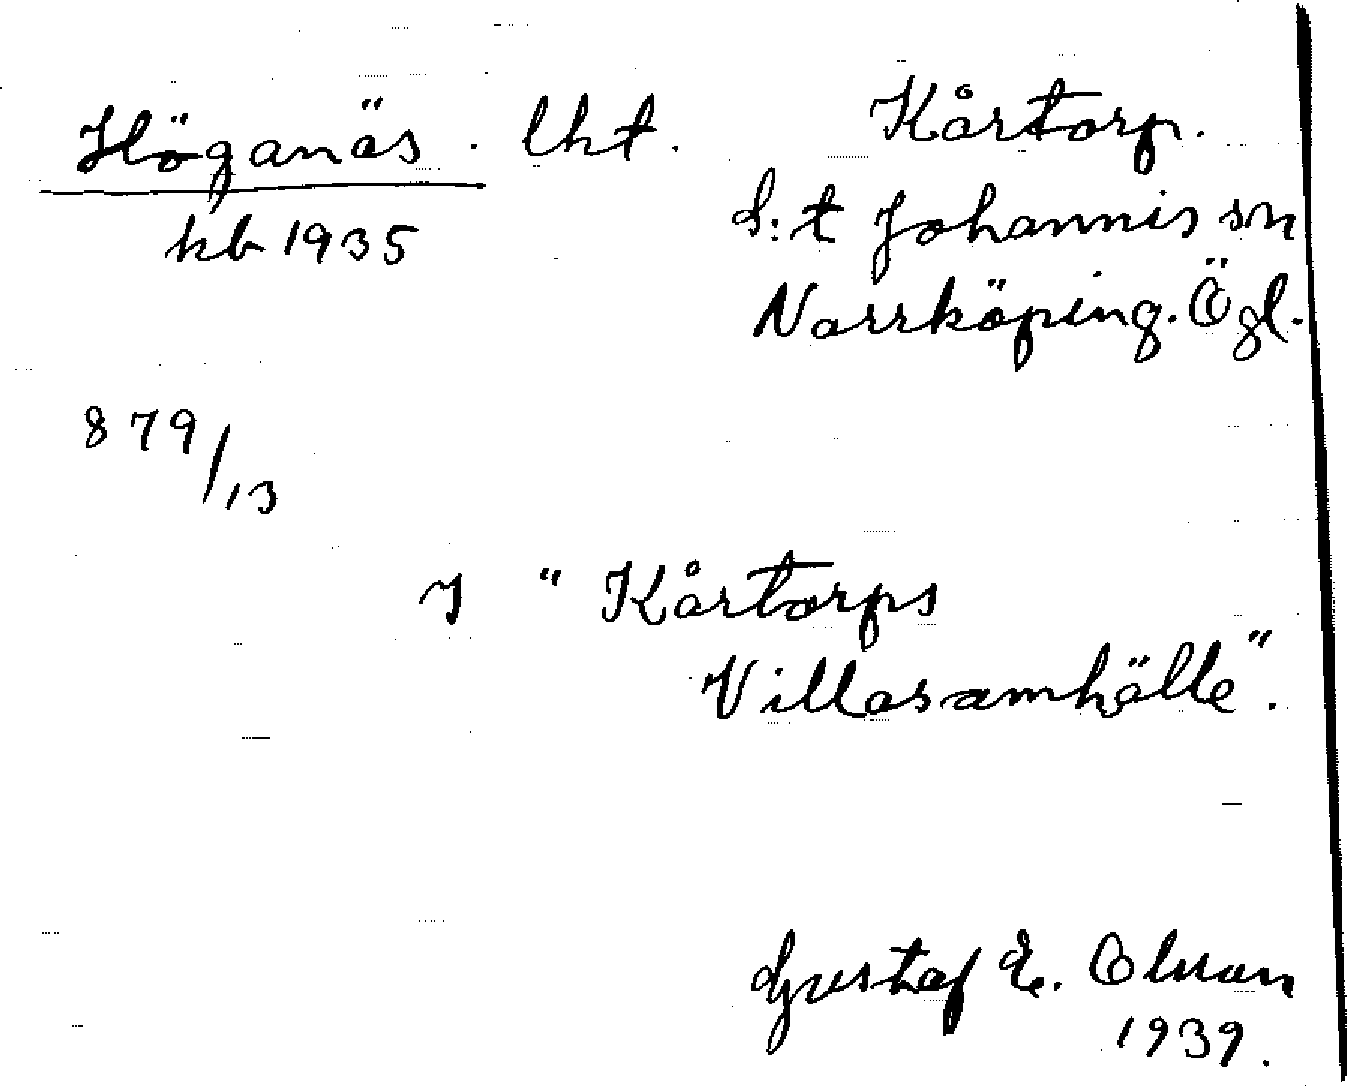 Höganäs. lht. Kårtorp.
kb 1935 S:t Johannis sn
Norrköping. Ögl.
879/13
I "Kårtorps
Villasamhälle".
Gustaf E. Olsson
1939.